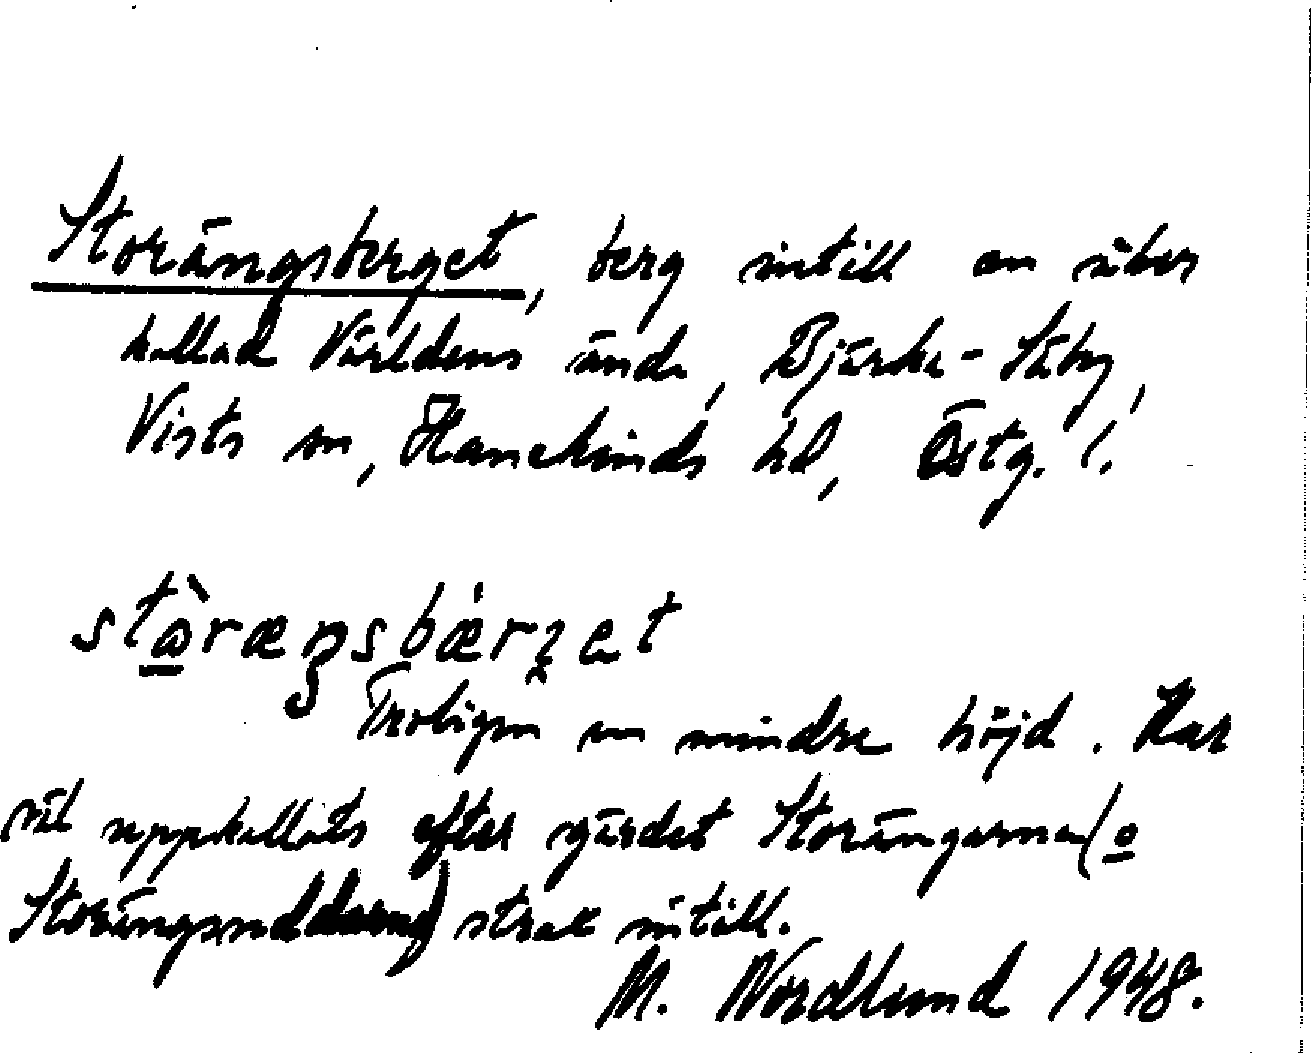 Storängsberget, berg intill en åker
kallad Världens ände, Bjärka-Säby,
Vists sn, Hanekinds hd, Östg. l.
stὼræŋsbærʒet
Troligen en mindre höjd. Har
väl uppkallats efter gärdet Storängarna (o
Storängsuddarna) strax intill.
M. Nordlund 1948.